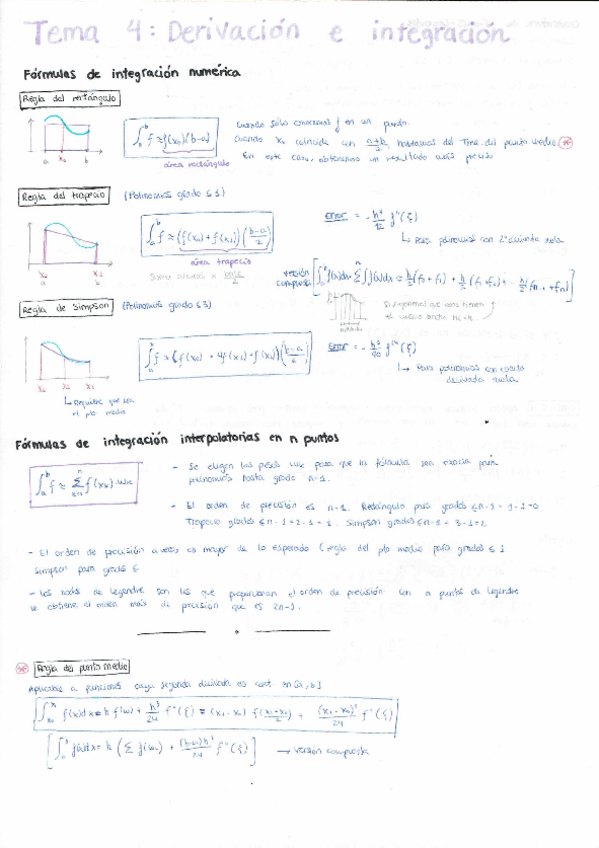 Tema 4: Derivación e integración
Fórmulas de integración numérica
Regla del rectángulo
∫_a^b f ≈ f(x₀)(b-a)
área rectángulo
Cuando sólo conocemos f en un punto.
Cuando x₀ coincide con (a+b)/2, hablamos del Tma. del punto medio
En este caso, obtenemos un resultado más preciso
a x₀ b
Regla del trapecio (Polinomios grado ≤ 1)
∫_a^b f ≈ (f(x₀) + f(x₁)) ((b-a)/2)
área trapecio
Error = - h³/12 f''(ξ)
↳ Para polinomios con 2ª derivada nula
x₀ x₁
a b
versión compuesta
Regla de Simpson (Polinomios grado ≤ 3)
∫_a^b f ≈ (f(x₀) + 4f(x₁) + f(x₂)) ((b-a)/6)
Error = - h⁵/90 f^IV(ξ)
↳ Para polinomios con cuarta derivada nula.
x₀ x₁ x₂
↳ Requiere que sea
el pto medio
Fórmulas de integración interpolatorias en n puntos
∫_a^b f ≈ Σ f(xₖ) wₖ
- Se eligen los pesos wₖ para que la fórmula sea exacta para
polinomios hasta grado n-1.
- El orden de precisión es n-1. Rectángulo para grados ≤ n-1 = 1-1 = 0
Trapecio grados ≤ n-1 = 2-1 = 1. Simpson grados ≤ n-1 = 3-1 = 2
- El orden de precisión a veces es mayor de lo esperado (regla del pto medio para grados ≤ 1
Simpson para grados
- Los nodos de Legendre son los que proporcionan el orden de precisión. Con n puntos de Legendre
se obtiene el orden máx de precisión que es 2n-1.
Regla del punto medio
Aplicable a funciones cuya segunda derivada es cont. en [a,b]
∫ f(x)dx = h f(w) + h³/24 f''(ξ) = (x₁-x₀) f((x₁+x₀)/2) + (x₁-x₀)³/24 f''(ξ)
[∫_a^b f(x)dx = h (Σ f(wᵢ) + (b-a)h²/24 f''(ξ)] → versión compuesta